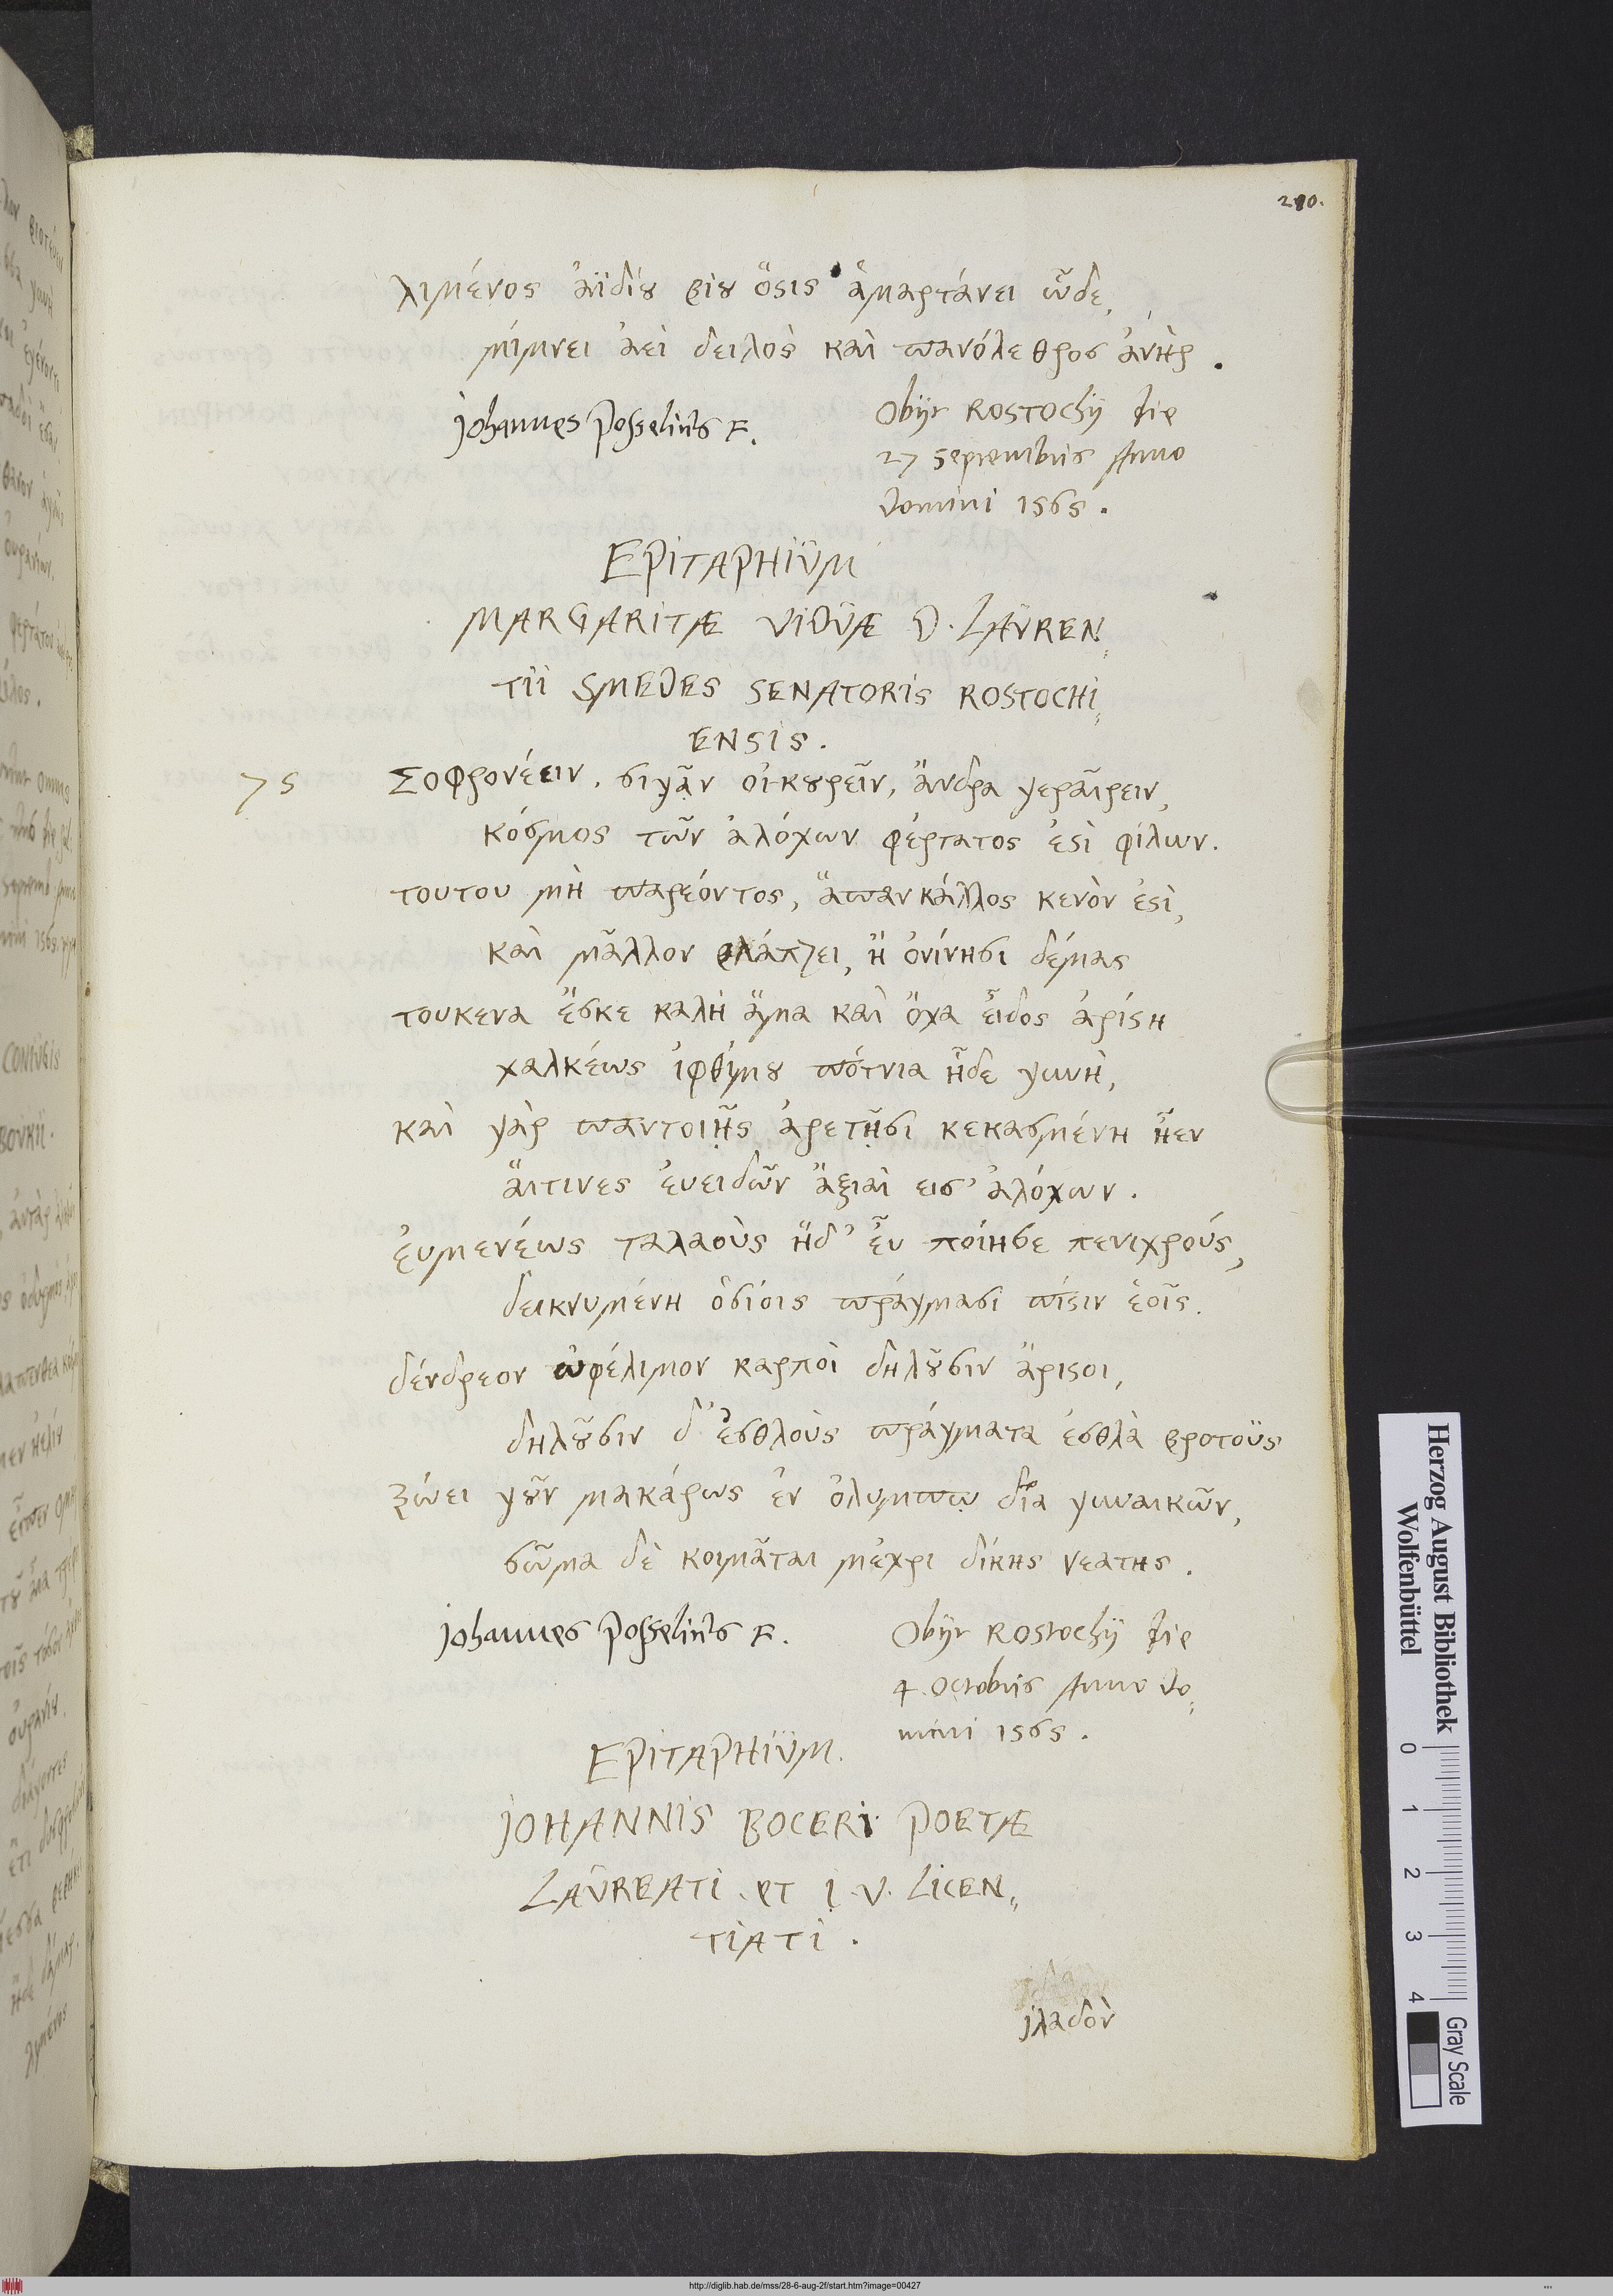 210.
λιμένος ἀϊδίȣ βίȣ ὅϛις ἁμαρτάνει ὧδε,
μίμνει ἀεὶ δειλὸς καὶ πανόλεθρος ἀνὴρ.
Johannes Posselius F.
Obijt Rostochij die
27 Septembris Anno
Domini 1565.
EPITAPHIUM
MARGARITÆ VIDUÆ D. LAUREN„
TII SMEDES SENATORIS ROSTOCHI„
ENSIS.
75
Σοφρονέειν, σιγᾷν οἰκȣρεῖν, ἄνδρα γεραῖρειν,
κόσμος τῶν ἀλόχων φέρτατος ἐϛὶ φίλων.
τουτου μὴ παρεόντος, ἅπαν κάλλος κενὸν ἐϛὶ,
καὶ μᾶλλον βλάπτει, ἢ ὀνίνησι δέμας
τουκενα ἔσκε καλὴ ἅμα καὶ ὄχα εἶδος ἀρίϛη
χαλκέως ἰφθίμȣ πότνια ἥδε γυνὴ,
καὶ γὰρ παντοιῇς ἀρετῇσι κεκασμένη ἦεν
ἅιτινες ἐυειδῶν ἄξιαὶ εισ' ἀλόχων.
ἐυμενέως ταλαοὺς ἠδ' ἐῦ ποίησε πενιχρούς,
δεικνυμένη ὁσίοις πράγμασι πίϛιν ἑοῖς.
δένδρεον ὠφέλιμον καρποὶ δηλȣ͂σιν ἄριϛοι,
δηλȣ͂σιν δ' ἐσθλοὺς πράγματα ἐσθλὰ βροτοὺς
ζώει γȣ͂ν μακάρως ἐν ὀλυμπῳ δῖα γυναικῶν,
σῶμα δὲ κοιμᾶται μέχρι δίκης νεατης.
Johannes Posselius F.
Obijt Rostochij die
4. Octobris Anno Do„
mini 1565.
EPITAPHIUM.
JOHANNIS BOCERI POETÆ
LAUREATI. ET I. V. LICEN„
TIATI.
ἰλαδὸν
Herzog August Bibliothek
Wolfenbüttel
0 1 2 3 4
Gray Scale
http://diglib.hab.de/mss/28-6-aug-2f/start.htm?image=00427